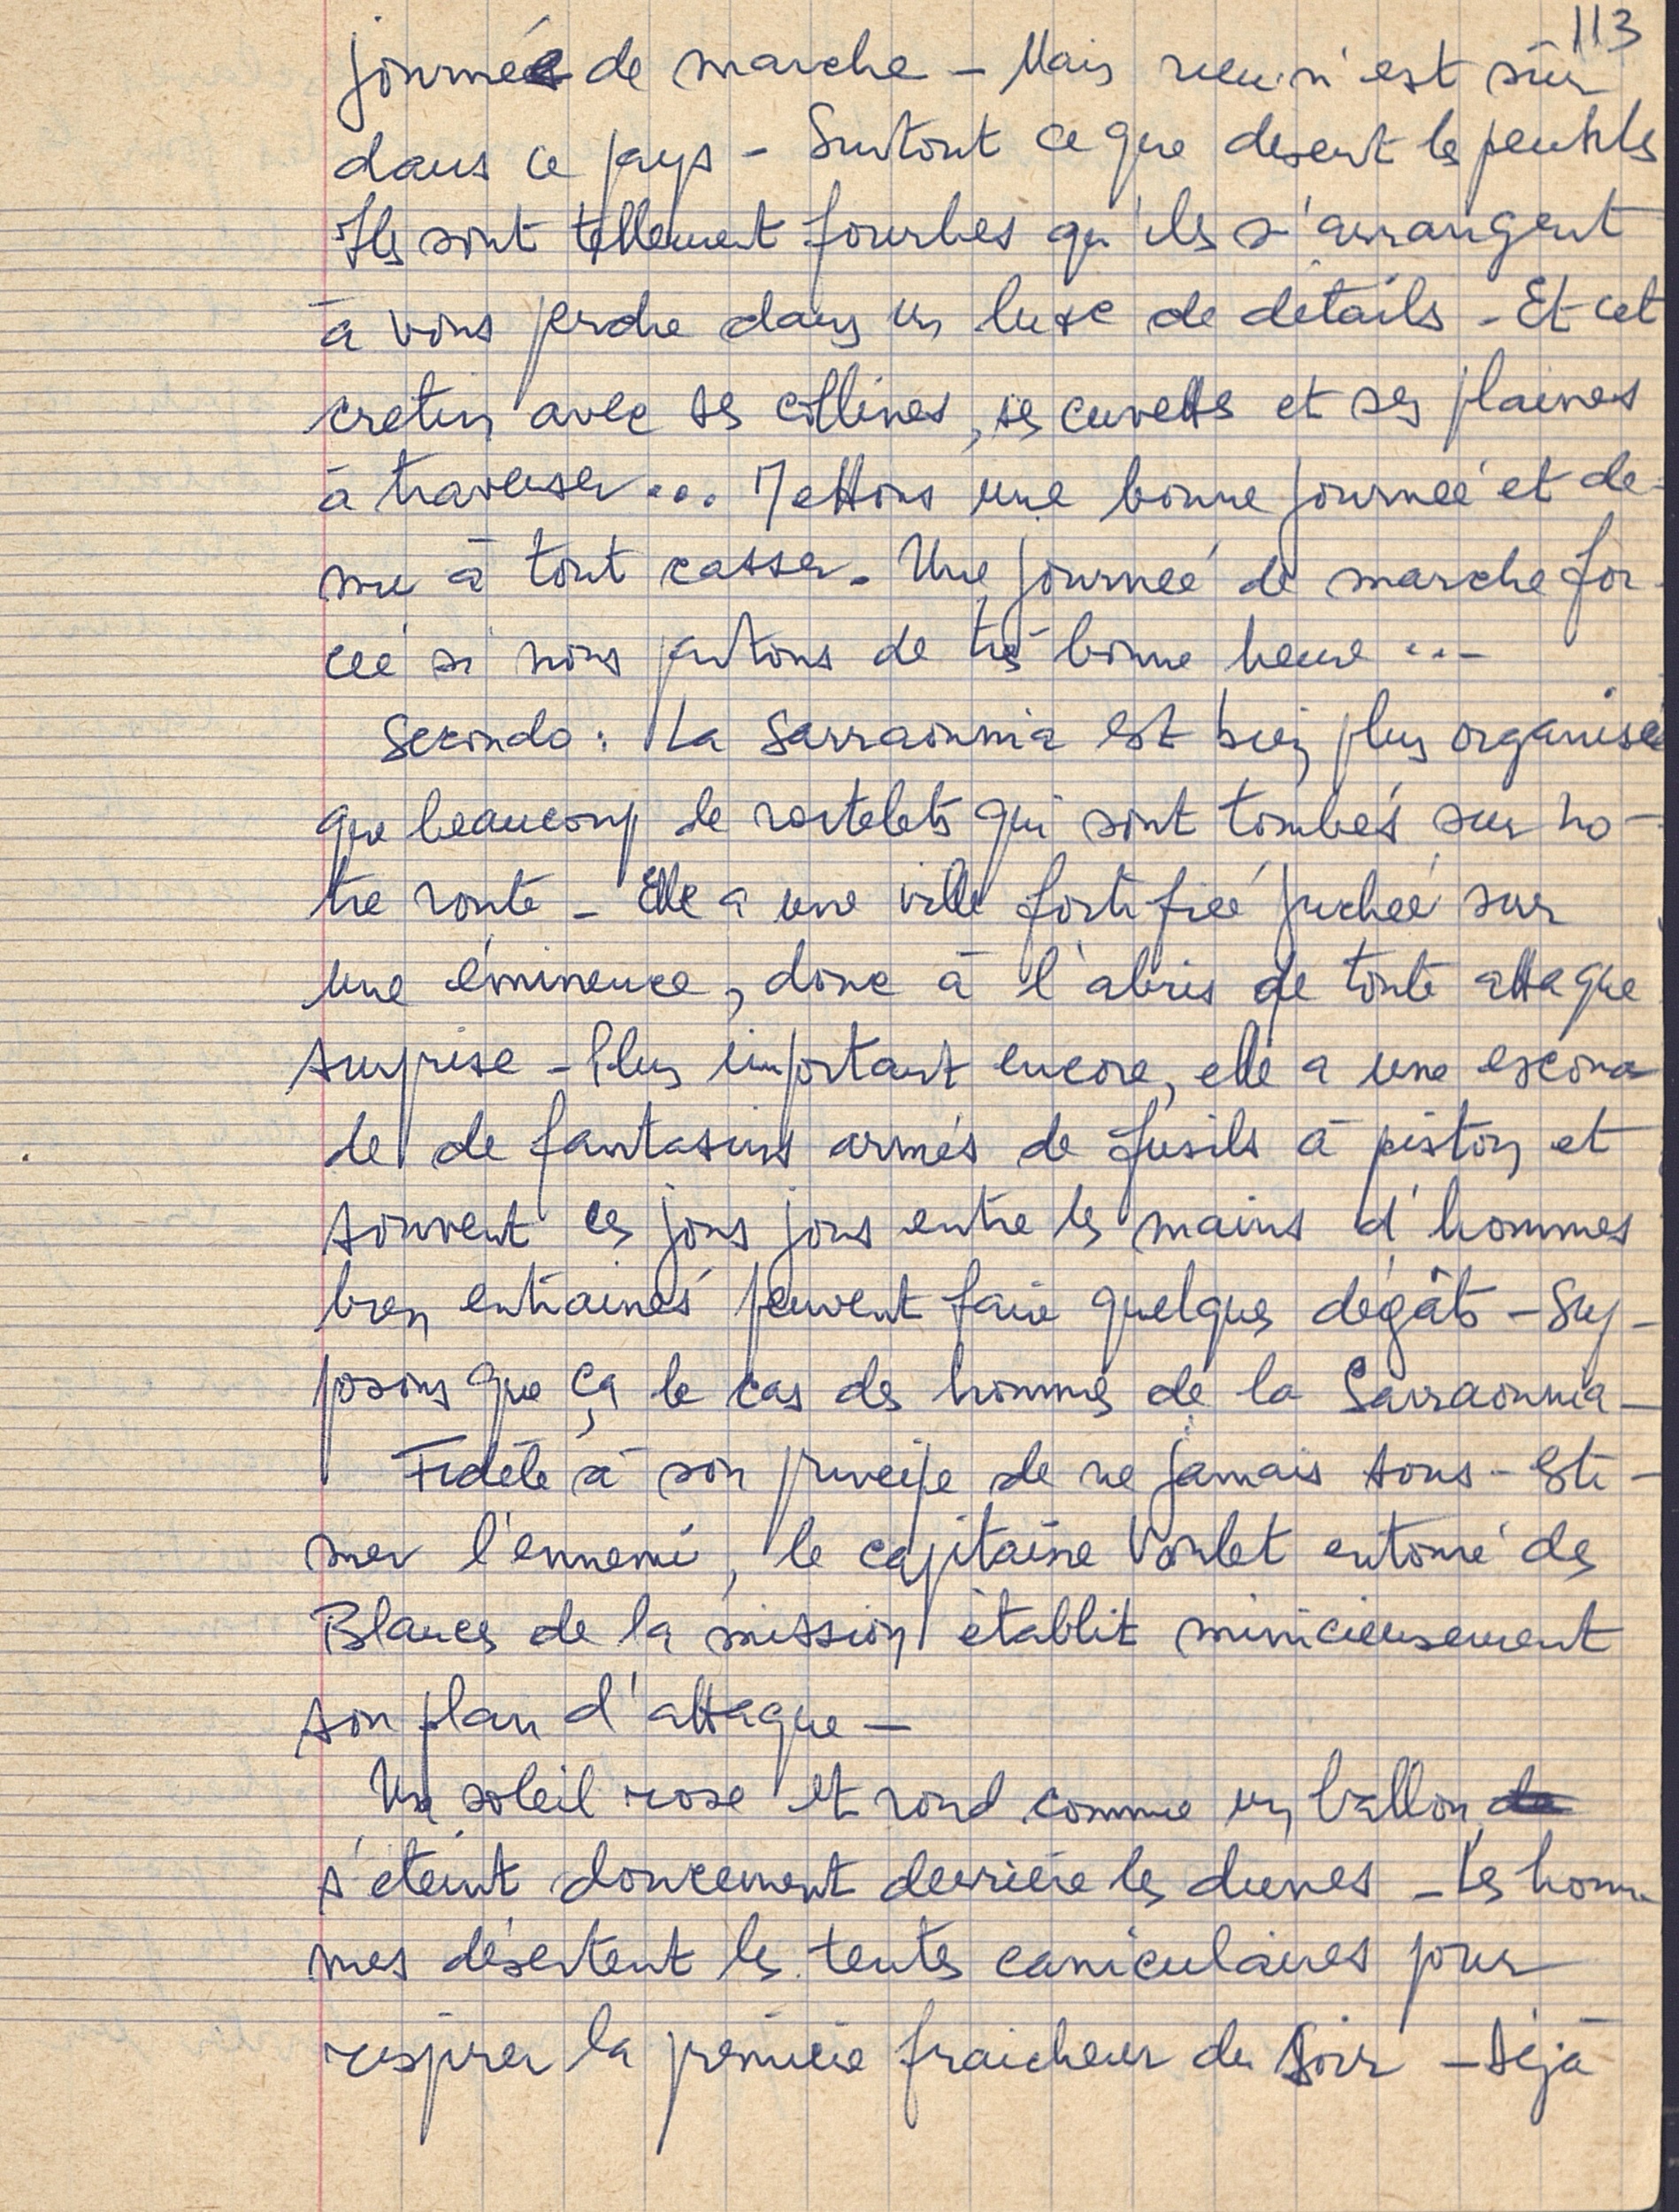 113
journée de marche - Mais rien n'est sûr
dans ce pays - Surtout ce que disent les peuhls
Ils sont tellement fourbes qu'ils s'arrangent
à vous perdre dans un luxe de détails - Et cet
cretin avec ses collines, ses cuvettes et ses plaines
à traverser... Mettons une bonne journée et de-
mie à tout casser. Une journée de marche for-
cée si nous partons de très bonne heure ...
Secondo : La Sarraounia est bien plus organisée
que beaucoup de roitelets qui sont tombés sur no-
tre route - Elle a une ville fortifiée juchée sur
une éminence, donc à l'abris de toute attaque
surprise - Plus important encore, elle a une escoua
de de fantasins armés de fusils à piston et
souvent ces jous jous entre les mains d'hommes
bien entrainés peuvent faire quelques dégâts - Sup-
posons que ça le cas des hommes de la Sarraounia -
Fidèle à son principe de ne jamais sous-esti-
mer l'ennemi, le capitaine Voulet entouré des
Blancs de la mission établit minicieusement
son plan d'attaque -
Un soleil rose et rond comme un ballon de
s'éteint doucement derrière les dunes - Les hom
mes désertent les tentes caniculaires pour
respirer la première fraicheur du soir - Déjà